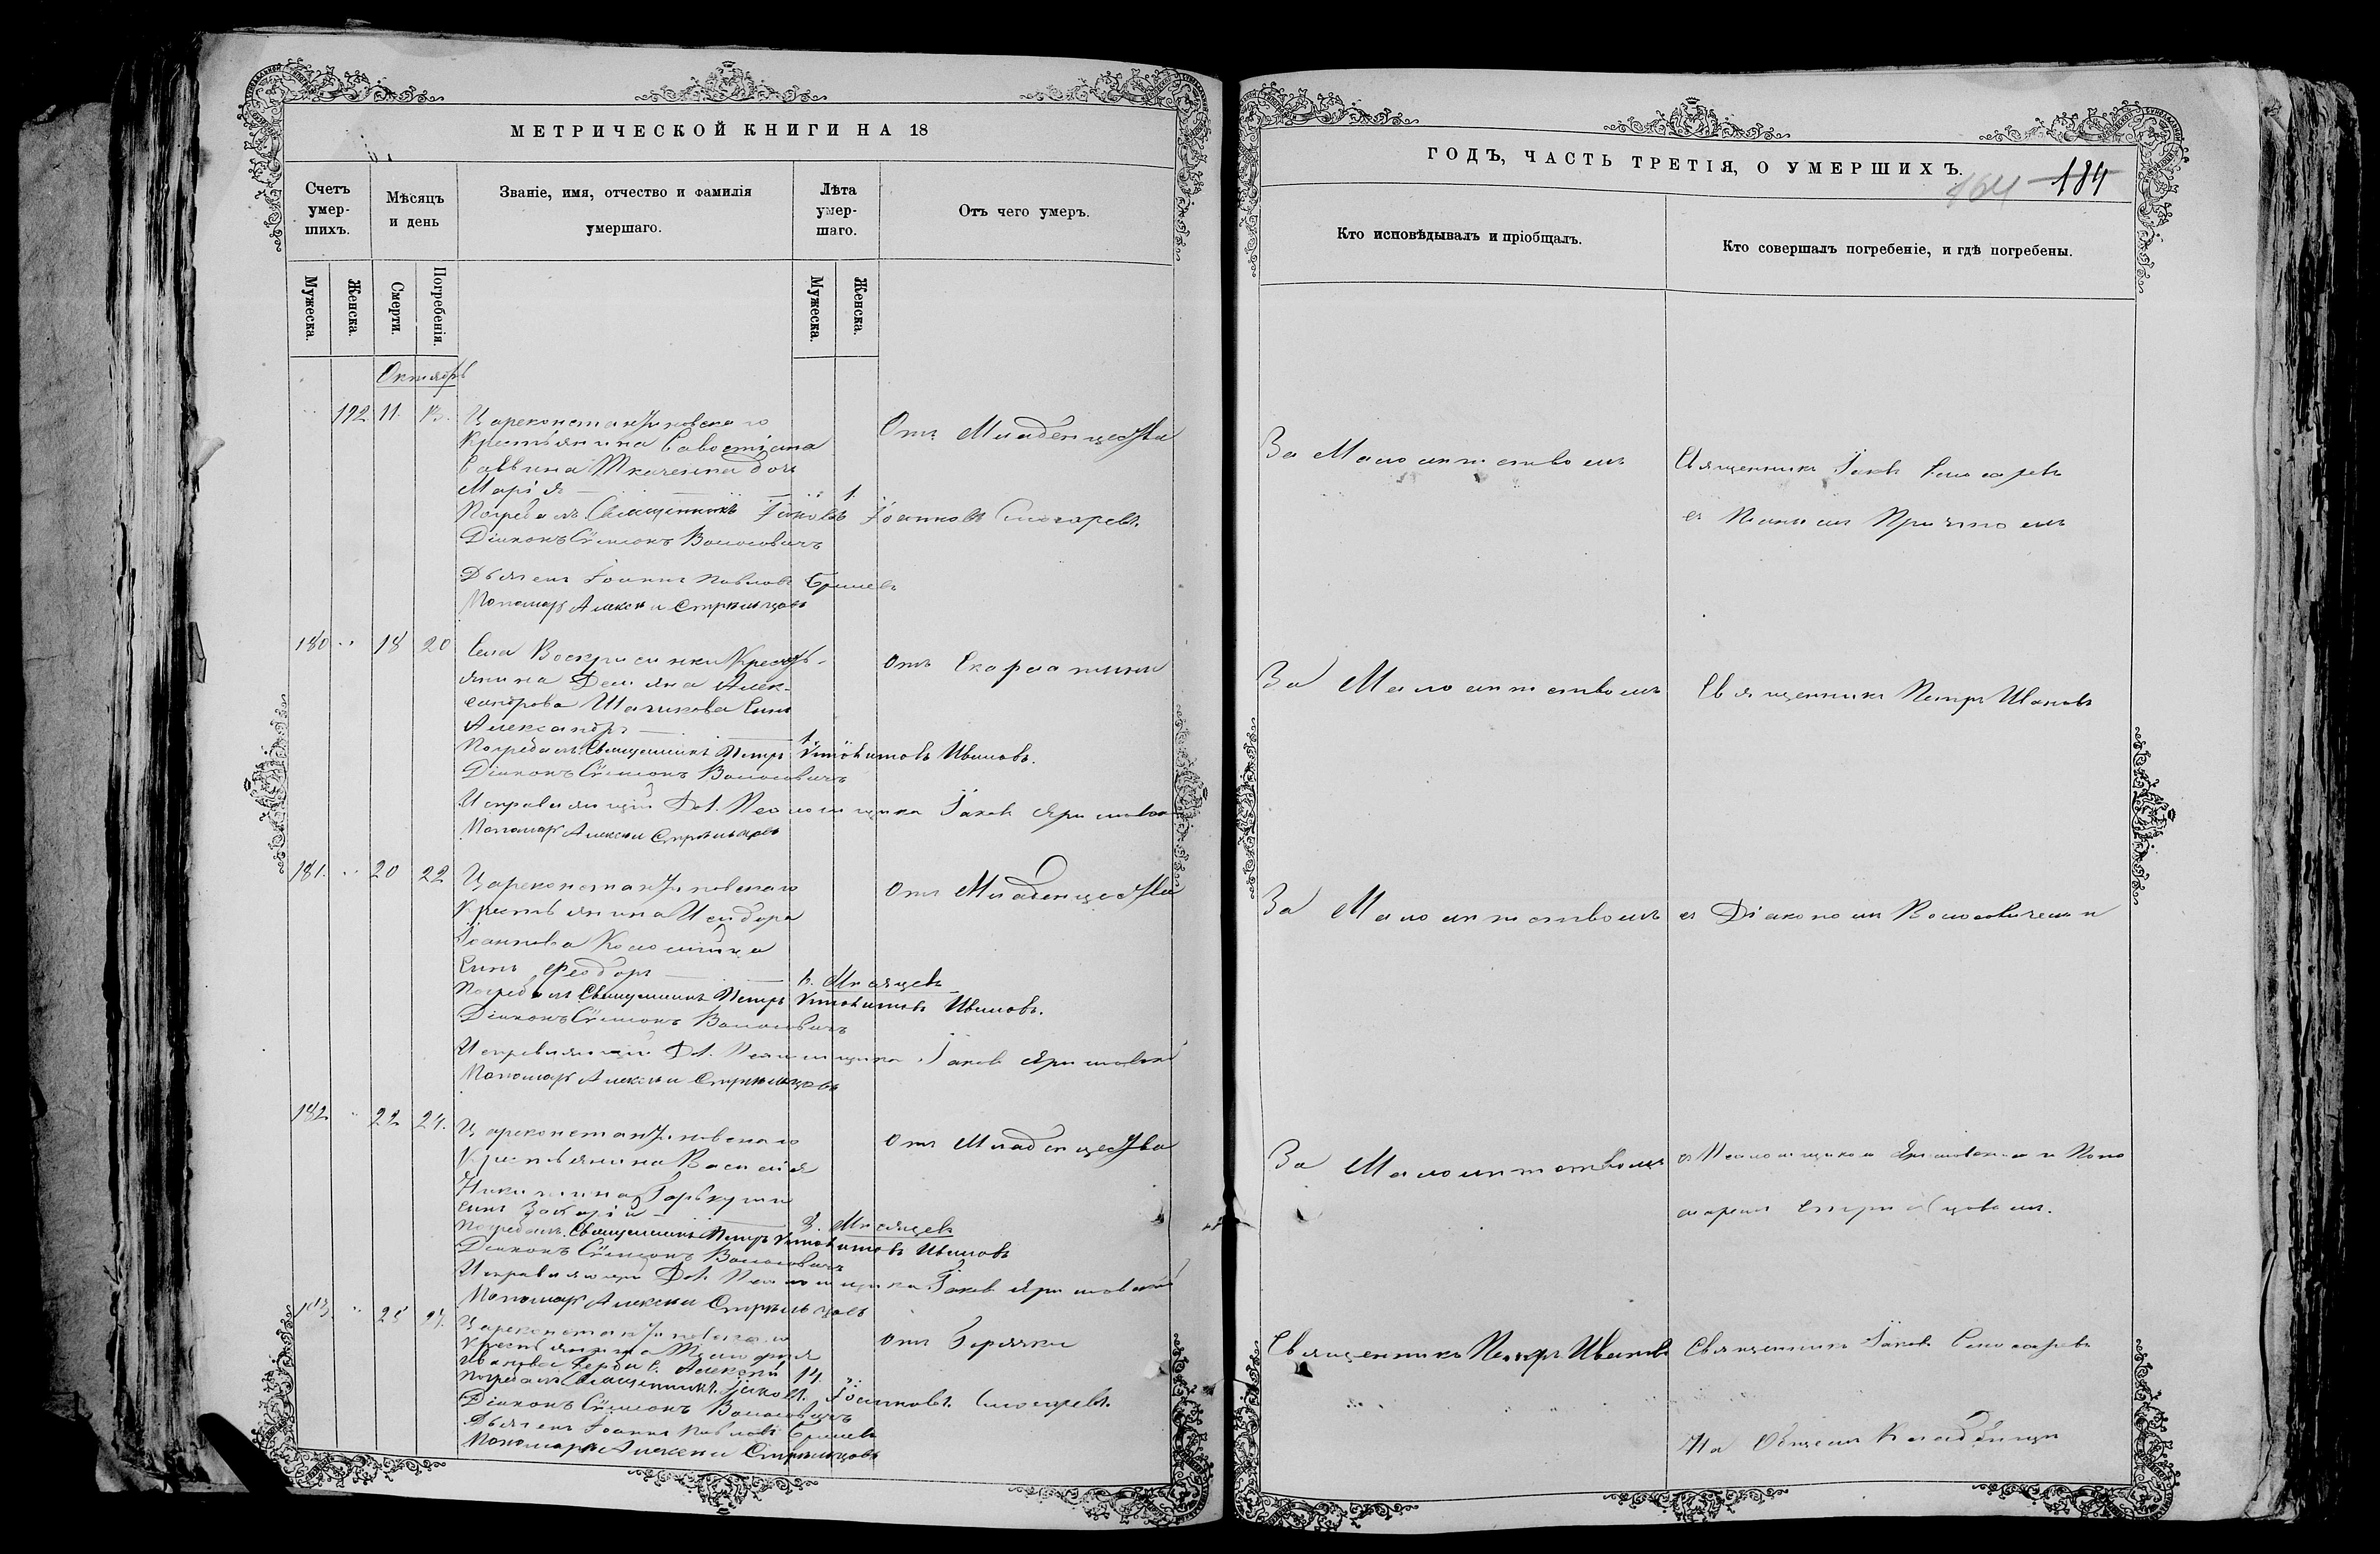 МЕТРИЧЕСКОЙ КНИГИ НА 18
Счетъ умер-шихъ.
Мѣсяцъ и день
Званіе, имя, отчество и фамилія умершаго.
Лѣта умер-шаго.
Отъ чего умеръ.
Мужеска.
Женска.
Смерти.
Погребенія.
Мужеска.
Женска.
Октябрь
192 11. 13.
Цареконстантиновскаго
Крестьянина Савостіана
Саввина Ткаченка дочь
Марія 1.
Отъ Младенчества
Погребалъ Священникъ Іаковъ Іоанновъ
Діаконъ Сѵмеонъ
Дьячекъ Іоаннъ Павловъ
Пономарь Алексѣй Стрѣльцовъ
180 18 20
Села Воскресенки Кресть-
янина Демьяна Алек-
сандрова Шаликова Сынъ
Александръ 1.
Отъ Скарлатины
Погребалъ Священникъ Петръ Ивановъ.
Діаконъ Сѵмеонъ
Исправляющій Дол. Псаломщика Іаковъ
Пономарь Алексѣй Стрѣльцовъ
181. 20 22
Цареконстантиновскаго
Крестьянина Исидора
Іоаннова Коломійца
Сынъ Феодоръ Мѣсяцевъ
Отъ Младенчества
Погребалъ Священникъ Петръ Ивановъ.
Діаконъ Сѵмеонъ
Исправляющій Дол. Псаломщика Іаковъ
Пономарь Алексѣй Стрѣльцовъ
182 22 24.
Цареконстантиновскаго
Крестьянина Василія
Никитина Горькуши
Сынъ Захарія 3. Мѣсяцевъ
Отъ Младенчества
Погребалъ Священникъ Петръ Ивановъ
Діаконъ Сѵмеонъ
Исправляющій Дол. Псаломщика Іаковъ
Пономарь Алексѣй Стрѣльцовъ
183. 25 27.
Цареконстантиновскаго
Крестьянина Тимофея
Иванова Алексѣй 14.
Отъ Горячки
Погребалъ Священникъ Іаковъ Іоанновъ
Діаконъ Сѵмеонъ
Дьячекъ Іоаннъ Павловъ
Пономарь Алексѣй Стрѣльцовъ
ГОДЪ, ЧАСТЬ ТРЕТІЯ, О УМЕРШИХЪ.
164 184
Кто исповѣдывалъ и пріобщалъ.
Кто совершалъ погребеніе, и гдѣ погребены.
За Малолѣтствомъ
Священникъ Іаковъ
съ Причтомъ
За Малолѣтствомъ
Священникъ Петръ Ивановъ
За Малолѣтствомъ
съ Діакономъ и
За Малолѣтствомъ
съ Псаломщикомъ и Поно
маремъ Стрѣльцовымъ.
Священникъ Петръ Ивановъ
Священникъ Іаковъ
На Общемъ Кладбищѣ